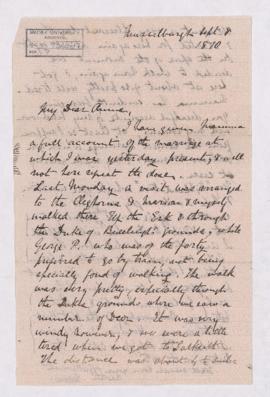 Musselburgh Sept. 8
1870
My Dear Annie,
I have given Mamma
a full account of the marriage at
which I was yesterday present, & will
not here repeat the dose.
Last Monday a visit was arranged
to the Cleghorns & Marian & myself
walked there Up the Esk & through
the Duke of Buccleugh's grounds, while
George P., who was of the party
preferred to go by train, not being
specially fond of walking. The walk
was very pretty, especially through
the Dukes grounds where we saw a
number of Deer. It was very
windy however, & we were a little
tired when we got to
The distance was about 6 to miles